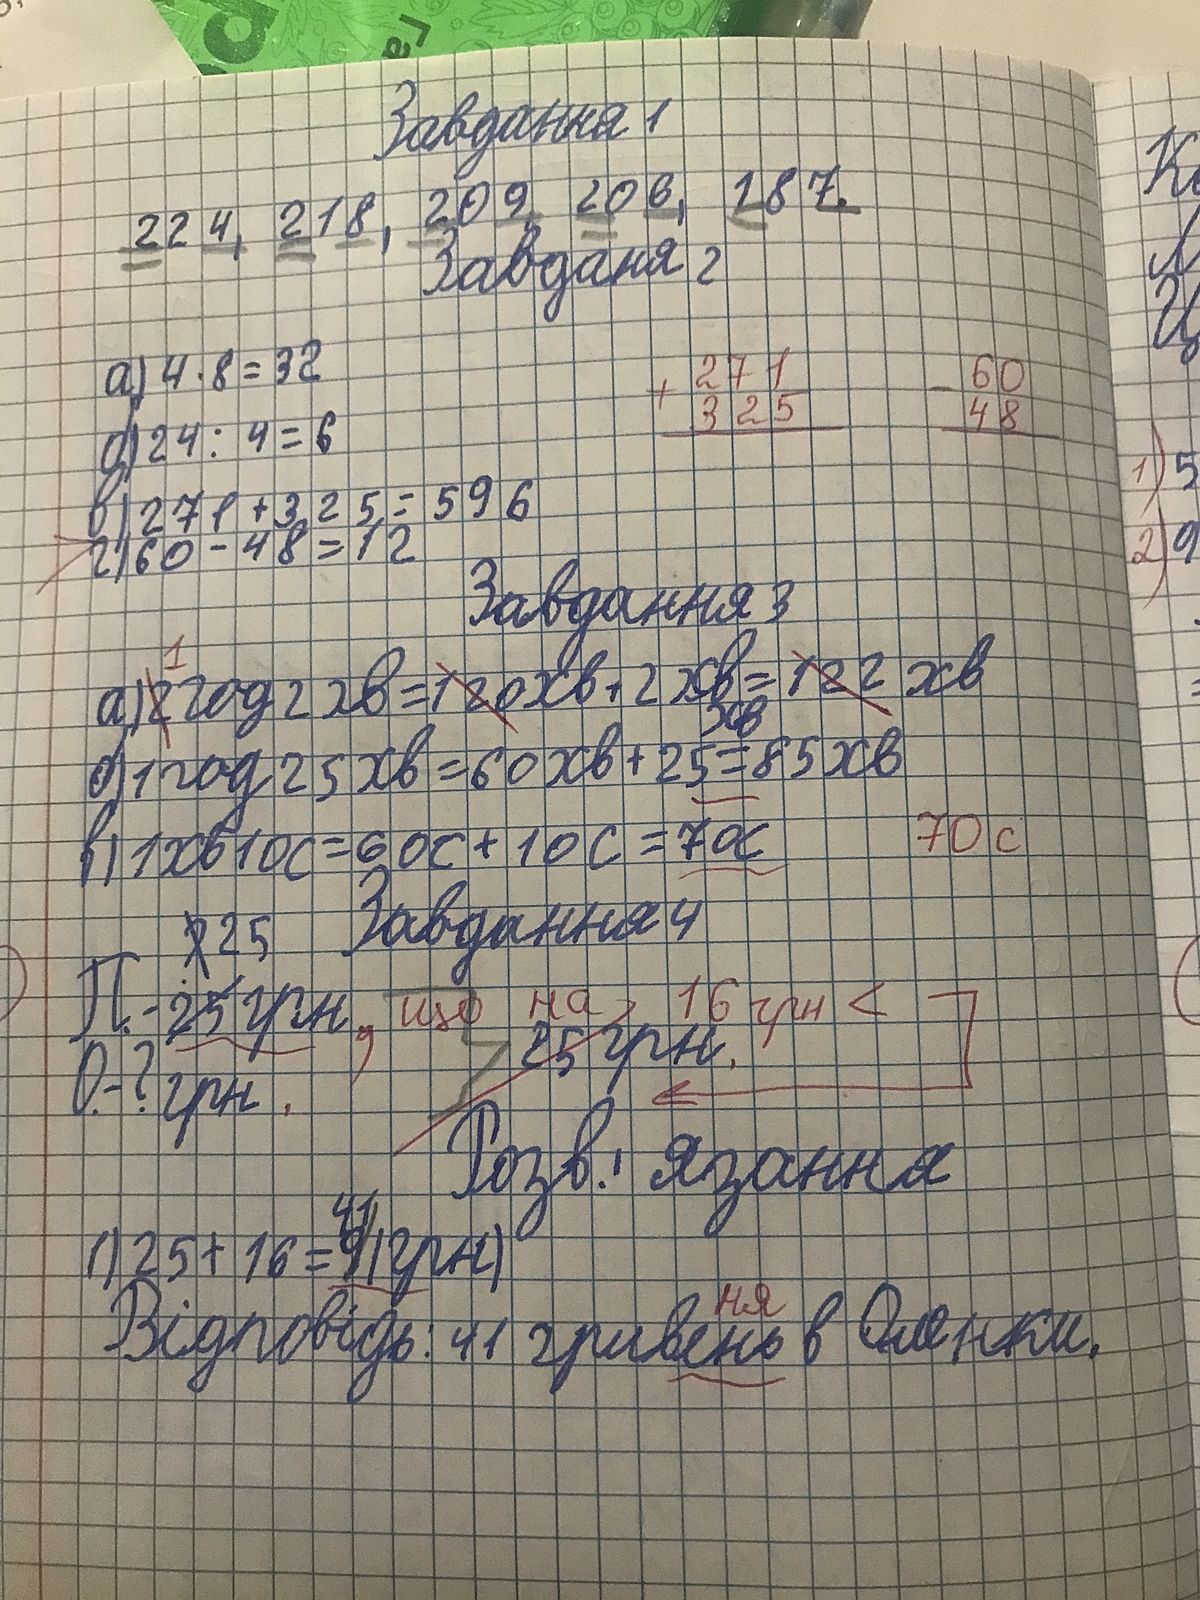 Завдання 1
224, 218, 209, 206, 187.
Завданя 2
а) 4 · 8 = 32
271
+ 325
- 60
48
б) 24 : 4 = 6
в) 271 + 325 = 596
г) 60 - 48 = 12
1) 5
2) 9
Завдання 3
1
а) 2 год 2 хв = 120 хв + 2 хв = 122 хв
хв
б) 1 год 25 хв = 60 хв + 25 = 85 хв
в) 1 хв 10 с = 60 с + 10 с = 70 с 70 с
Завдання 4
25
П. - 25 грн, що на 16 грн <
25 грн.
О. - ? грн.
Розв'язання
41
1) 25 + 16 = 41 (грн)
ня
Відповідь: 41 гривень в Оленки.